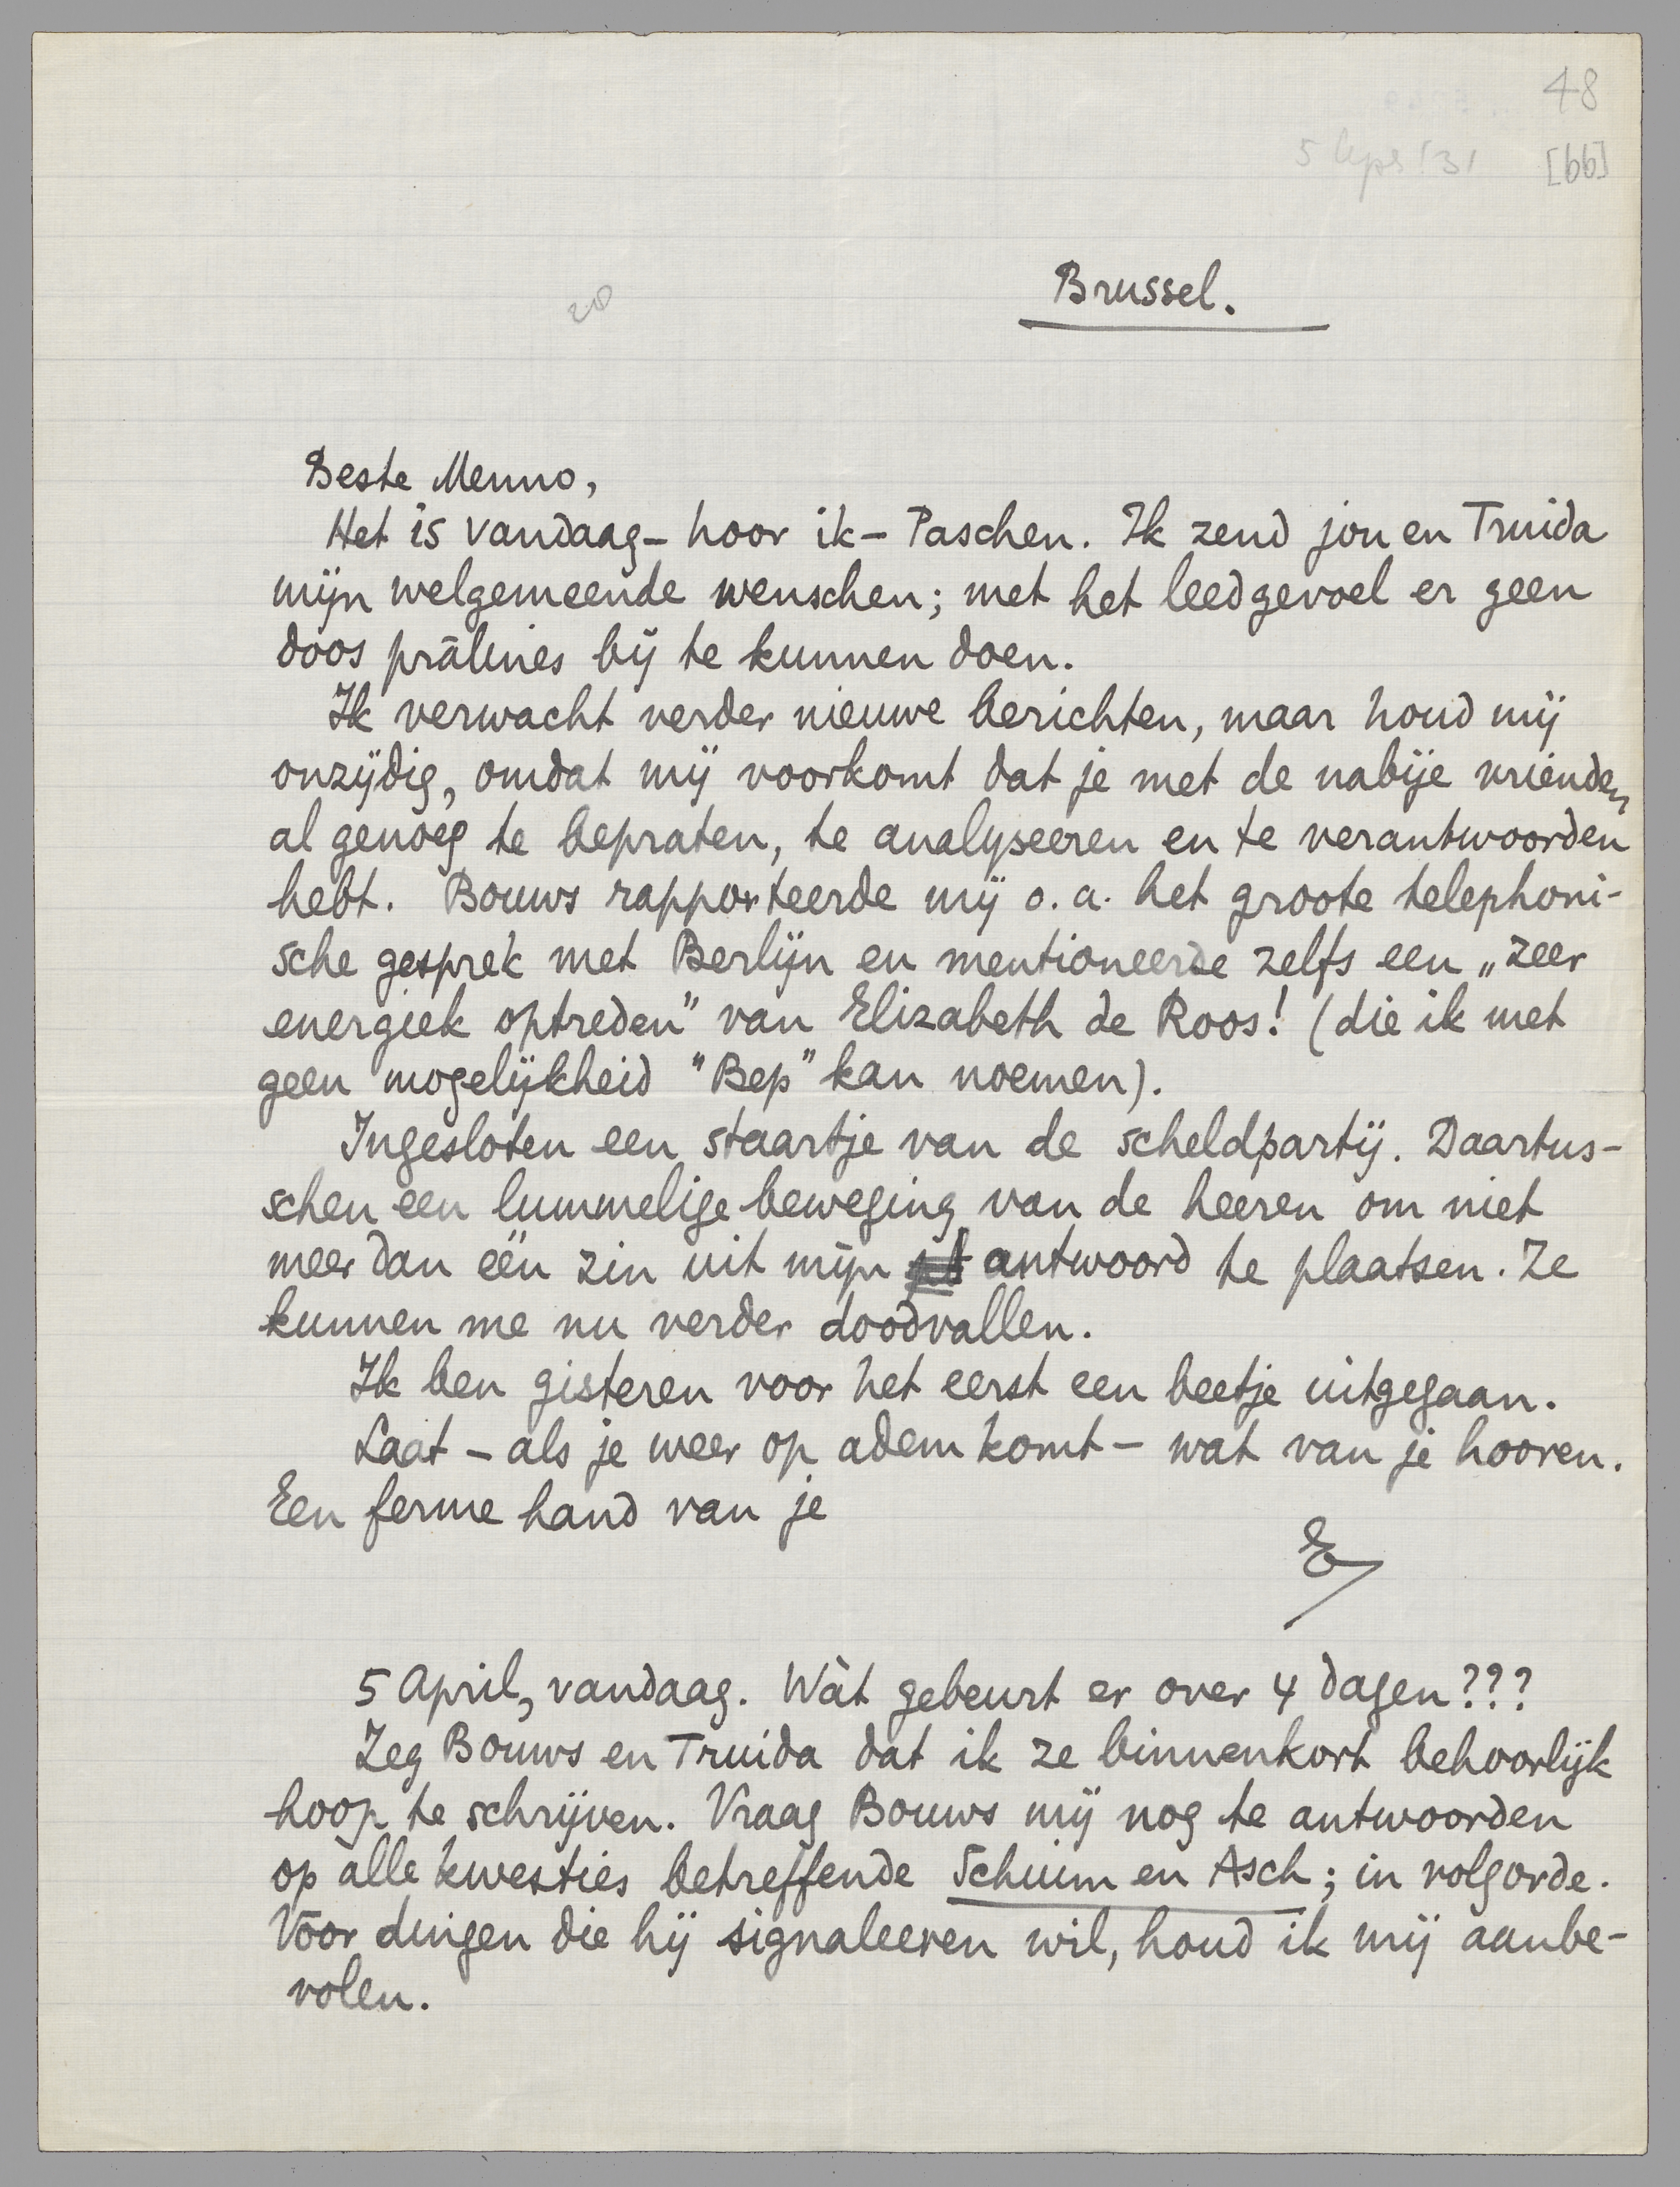 48
[66]
20
Brussel.
Beste Menno,
Het is vandaag – hoor ik – Paschen. Ik zend jou en Truida
mijn welgemeende wenschen; met het leedgevoel er geen
doos prâlines bij te kunnen doen.
Ik verwacht verder nieuwe berichten, maar houd mij
onzijdig, omdat mij voorkomt dat je met de nabije vrienden
al genoeg te bepraten, te analyseeren en te verantwoorden
hebt. Bouws rapporteerde mij o.a. het groote telephoni-
sche gesprek met Berlijn en mentioneerde zelfs een „zeer
energiek optreden” van Elizabeth de Roos! (die ik met
geen mogelijkheid "Bep" kan noemen).
Ingesloten een staartje van de scheldpartij. Daartus-
schen een lummelige beweging van de heeren om niet
meer dan één zin uit mijn antwoord te plaatsen. Ze
kunnen me nu verder doodvallen.
Ik ben gisteren voor het eerst een beetje uitgegaan.
Laat – als je weer op adem komt – wat van je hooren.
Een ferme hand van je
E
5 April, vandaag. Wàt gebeurt er over 4 dagen???
Zeg Bouws en Truida dat ik ze binnenkort behoorlijk
hoop te schrijven. Vraag Bouws mij nog te antwoorden
op alle kwesties betreffende Schuim en Asch; in volgorde.
Vóór dingen die hij signaleeren wil, houd ik mij aanbe-
volen.